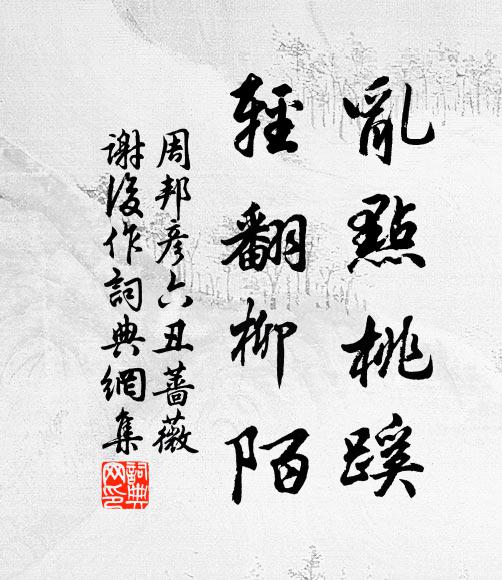 亂點桃蹊
輕翻柳陌
周邦彥六丑薔薇
謝後作詞典網集
詞典网印